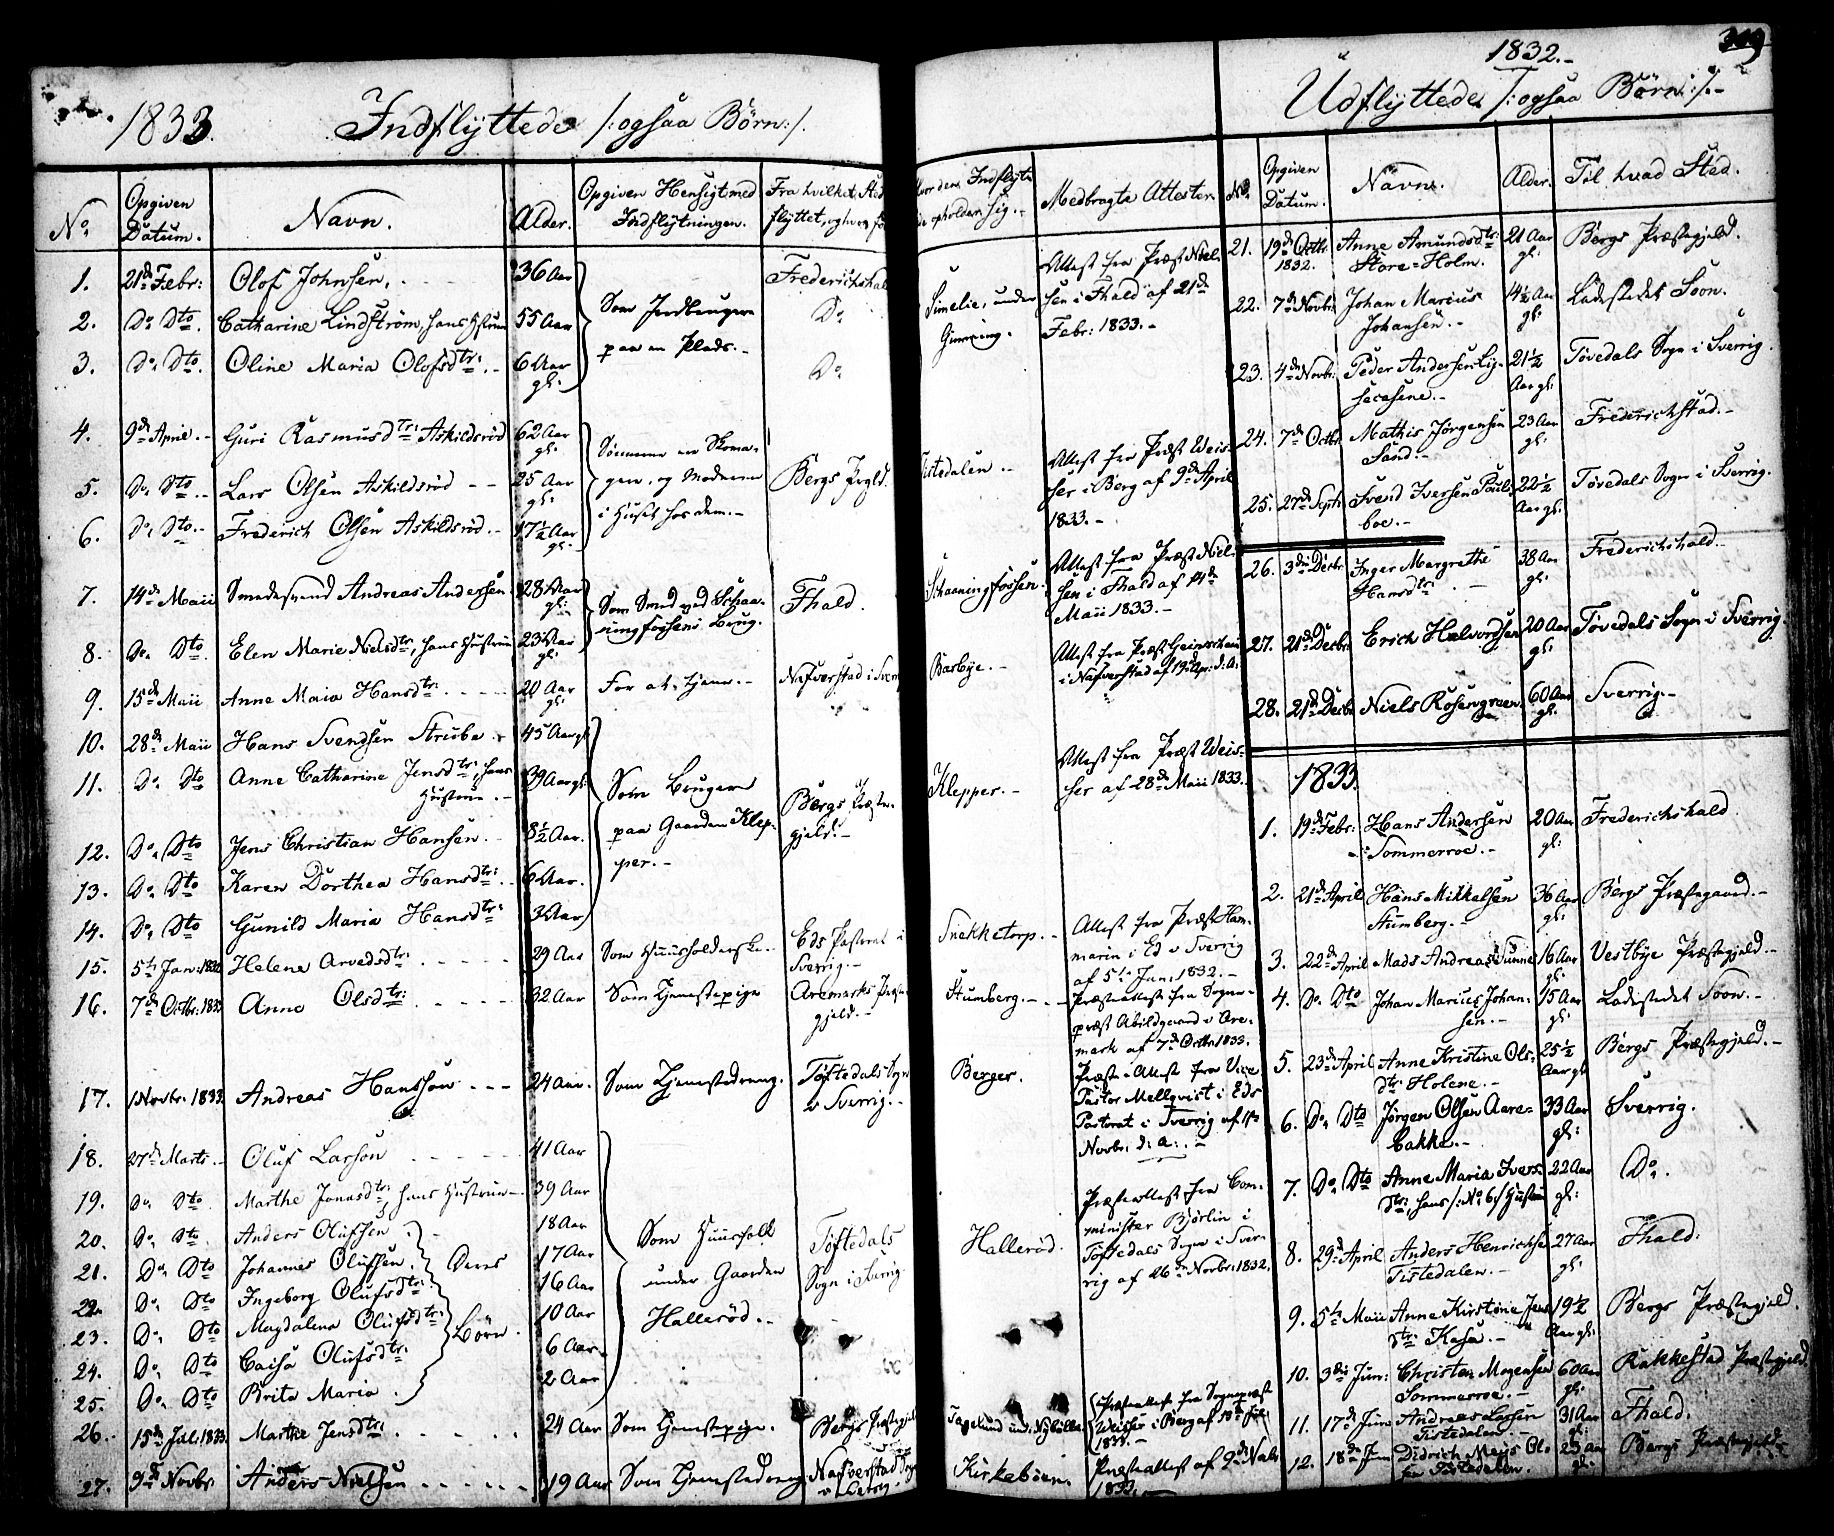 1833. Indflyttede /: ogsaa Børn :/.
No. Opgiven Datum. Navn. Alder. Opgiven Hensigt med Indflytningen. Fra hvilket Sted flyttet, og hvor
1. 21de Febr: Olof Johnsen. 36 Aar Frederichshald
2. Do. Dto. Catharine Lindström, hans Hustrue 55 Aar Som Jordbruger Do
3. Do. Dto. Oline Maria Olofsdtr. 6 Aar gl: paa en Plads. Do
4. 9de April. Guri Rasmusdtr: Askildsrød 62 Aar gl:
5. Do. Dto. Lars Olsen Askildsrød 25 Aar gl: Sønnerne som Skomagere, og Moderen Bergs Prgld.
6. Do. Dto. Frederich Olsen Askildsrød. 17½ Aar gl. i Huset hos dem.
7. 14de Maii Smedesvend Andreas Andersen 28 Aar gl: Som Smed ved Schaaningfossens Brug. Fhald.
8. Do. Dto. Elen Marie Nielsdtr, hans Hustrue 23 Aar gl:
9. 15de Maii Anne Maia Hansdtr: 20 Aar gl: For at tjene. Nafverstad i Sverrig
10. 28de Maii Hans Svendsen Strübe. 45 Aar gl.
11. Do. Dto Anne Catharine Jensdtr: hans Hustrue. 39 Aar gl. Som Brugere
12. Do. Dto Jens Christian Hansen. 8½ Aar. paa Gaarden Klepper. Bergs Præstegjeld.
13. Do. Dto Karen Dorthea Hansdtr: 6 Aar.
14. Do. Dto Gunild Maria Hansdtr: 3 Aar
15. 5te Jan: 1832 Helene Arvedsdtr: 29 Aar Som Huusholderske. Eds Pastorat i Sverrig.
16. 7de Octbr: 1833 Anne Olsdtr: 32 Aar Som Tjenestepige Aremarks Præstegjeld.
17. 1 Novbr. 1833. Andreas Hansson 24 Aar. Som Tjenestedreng. Töftedals Sogn i Sverrig.
18. 27de Marts. Oluf Larson 41 Aar
19. Do. Dto. Marthe Jonasdtr: hans Hustrue 39 Aar
20. Do. Dto. Anders Olufssen. 18 Aar Som Huusfolk Töftedals
21. Do. Dto Johannes Olufsen. Deres 17 Aar
22. Do. Dto Ingeborg Olufsdtr: 16 Aar under Gaarden Sogn i Sverrig
23. Do. Dto Magdalena Olufsdtr: Børn. 10 Aar Hallerød.
24. Do. Dto Caisa Olufsdtr: 6 Aar.
25. Do. Dto Brita Maria. 2 Aar
26. 15de Jul: 1833. Marthe Jensdtr: 24 Aar Som Tjenestepige. Bergs Præstegjeld
27. 9de Novbr. Anders Nielsen 19 Aar Som Tjenestedreng Nafverstad Sogn i Sverrig.
Hvor den Indflytte opholder sig. Medbragte Attester.
Simelie, under Attest fra Præst Nielsen i Fhald af 21de Febr: 1833.
Tistedalen. Attest fra Præst Weisser i Berg af 9de April 1833.
Schaaningfossen. Attest fra Præst Nielsen i Fhald af 14de Maii 1833.
Basbye. Attest fra Præst i Nafverstad af 19de Apr: d: A:
Klepper. Attest fra Præst Weisser af 28de Maii 1833.
Snekketorp. Attest fra Præst Hammarin i Ed i Sverrig af 5te Jan. 1832.
Stumberg. Præsteattest fra Sognepræst Abildgaard i Aremark af 7de Octbr 1833.
Berger. Præste-Attest fra Vice Pastor Mellqvist i Eds Pastorat i Sverrig af 1ste Novbr. d: A:
Hallerød. Præsteattest fra Comminister Bjørlin i Töftedals Sogn i Sverrig af 26de Novbr: 1832.
Præsteattest fra Sognepræst Weisser i Berg af Jul: 1833.
Kirkebøen. Præsteattest af 9de Novbr 1833.
1832. 319
Udflyttede /: ogsaa Børn :/.
No. Opgiven Datum. Navn. Alder. Til hvad Sted.
21. 19de Octbr 1832. Anne Amundsdtr: Store-Holm. 21 Aar gl: Bergs Præstegjeld.
22. 7de Novbr: Johan Marius Johansen. 14½ Aar gl: Ladestedet Soon.
23. 4de Novbr: Peder Andersen 21½ Aar gl: Tövedals Sogn i Sverrig.
24. 7de Octbr. Mathis Jörgensen Sand. 23 Aar gl: Frederichstad.
25. 27de Septb: Svend Iversen 22½ Aar gl: Tövedals Sogn i Sverrig.
26. 3die Decbr. Inger Margrethe Hansdtr 38 Aar gl: Frederichshald.
27. 21de Decbr: Erich Halvorsen 20 Aar gl: Tövedals Sogn i Sverrig
28. 21de Decbr Niels Rosengreen 60 Aar gl: Sverrig.
1833.
1. 19de Febr: Hans Andersen Sommerroe. 20 Aar gl: Frederichshald
2. 21de April Hans Mikkelsen Stumberg. 36 Aar gl: Bergs Præstegaard.
3. 22de April Mads Andreas Tunne 16 Aar gl: Vestbye Præstegjeld.
4. Do. Dto Johan Marius Johansen. 15 Aar gl: Ladestedet Soon.
5. 23de April Anne Kristine Olsdtr: Holene. 25½ Aar gl: Bergs Præstegjeld.
6. Do. Dto Jörgen Olsen Aarebakke. 33 Aar gl: Sverrig.
7. Do. Dto Anne Maria Iversdtr:, hans /: No 6 :/ Hustrue 22 Aar gl: Do.
8. 29de April Anders Henrichsen Tistedalen. 27 Aar gl: Fhald.
9. 5te Maii Anne Kirstine Jensdtr: Kasa. 19½ Aar gl: Bergs Præstegjeld.
10. 3die Jun: Christen Mogensen Sommerroe. 60 Aar gl: Rakkestad Præstegjeld
11. 17de Juni Andreas Larsen Tistedalen. 31 Aar gl: Fhald.
12. 18de Jun Didrich Olsen Tistedalen. 25 Aar gl: Bergs Præstegjeld.